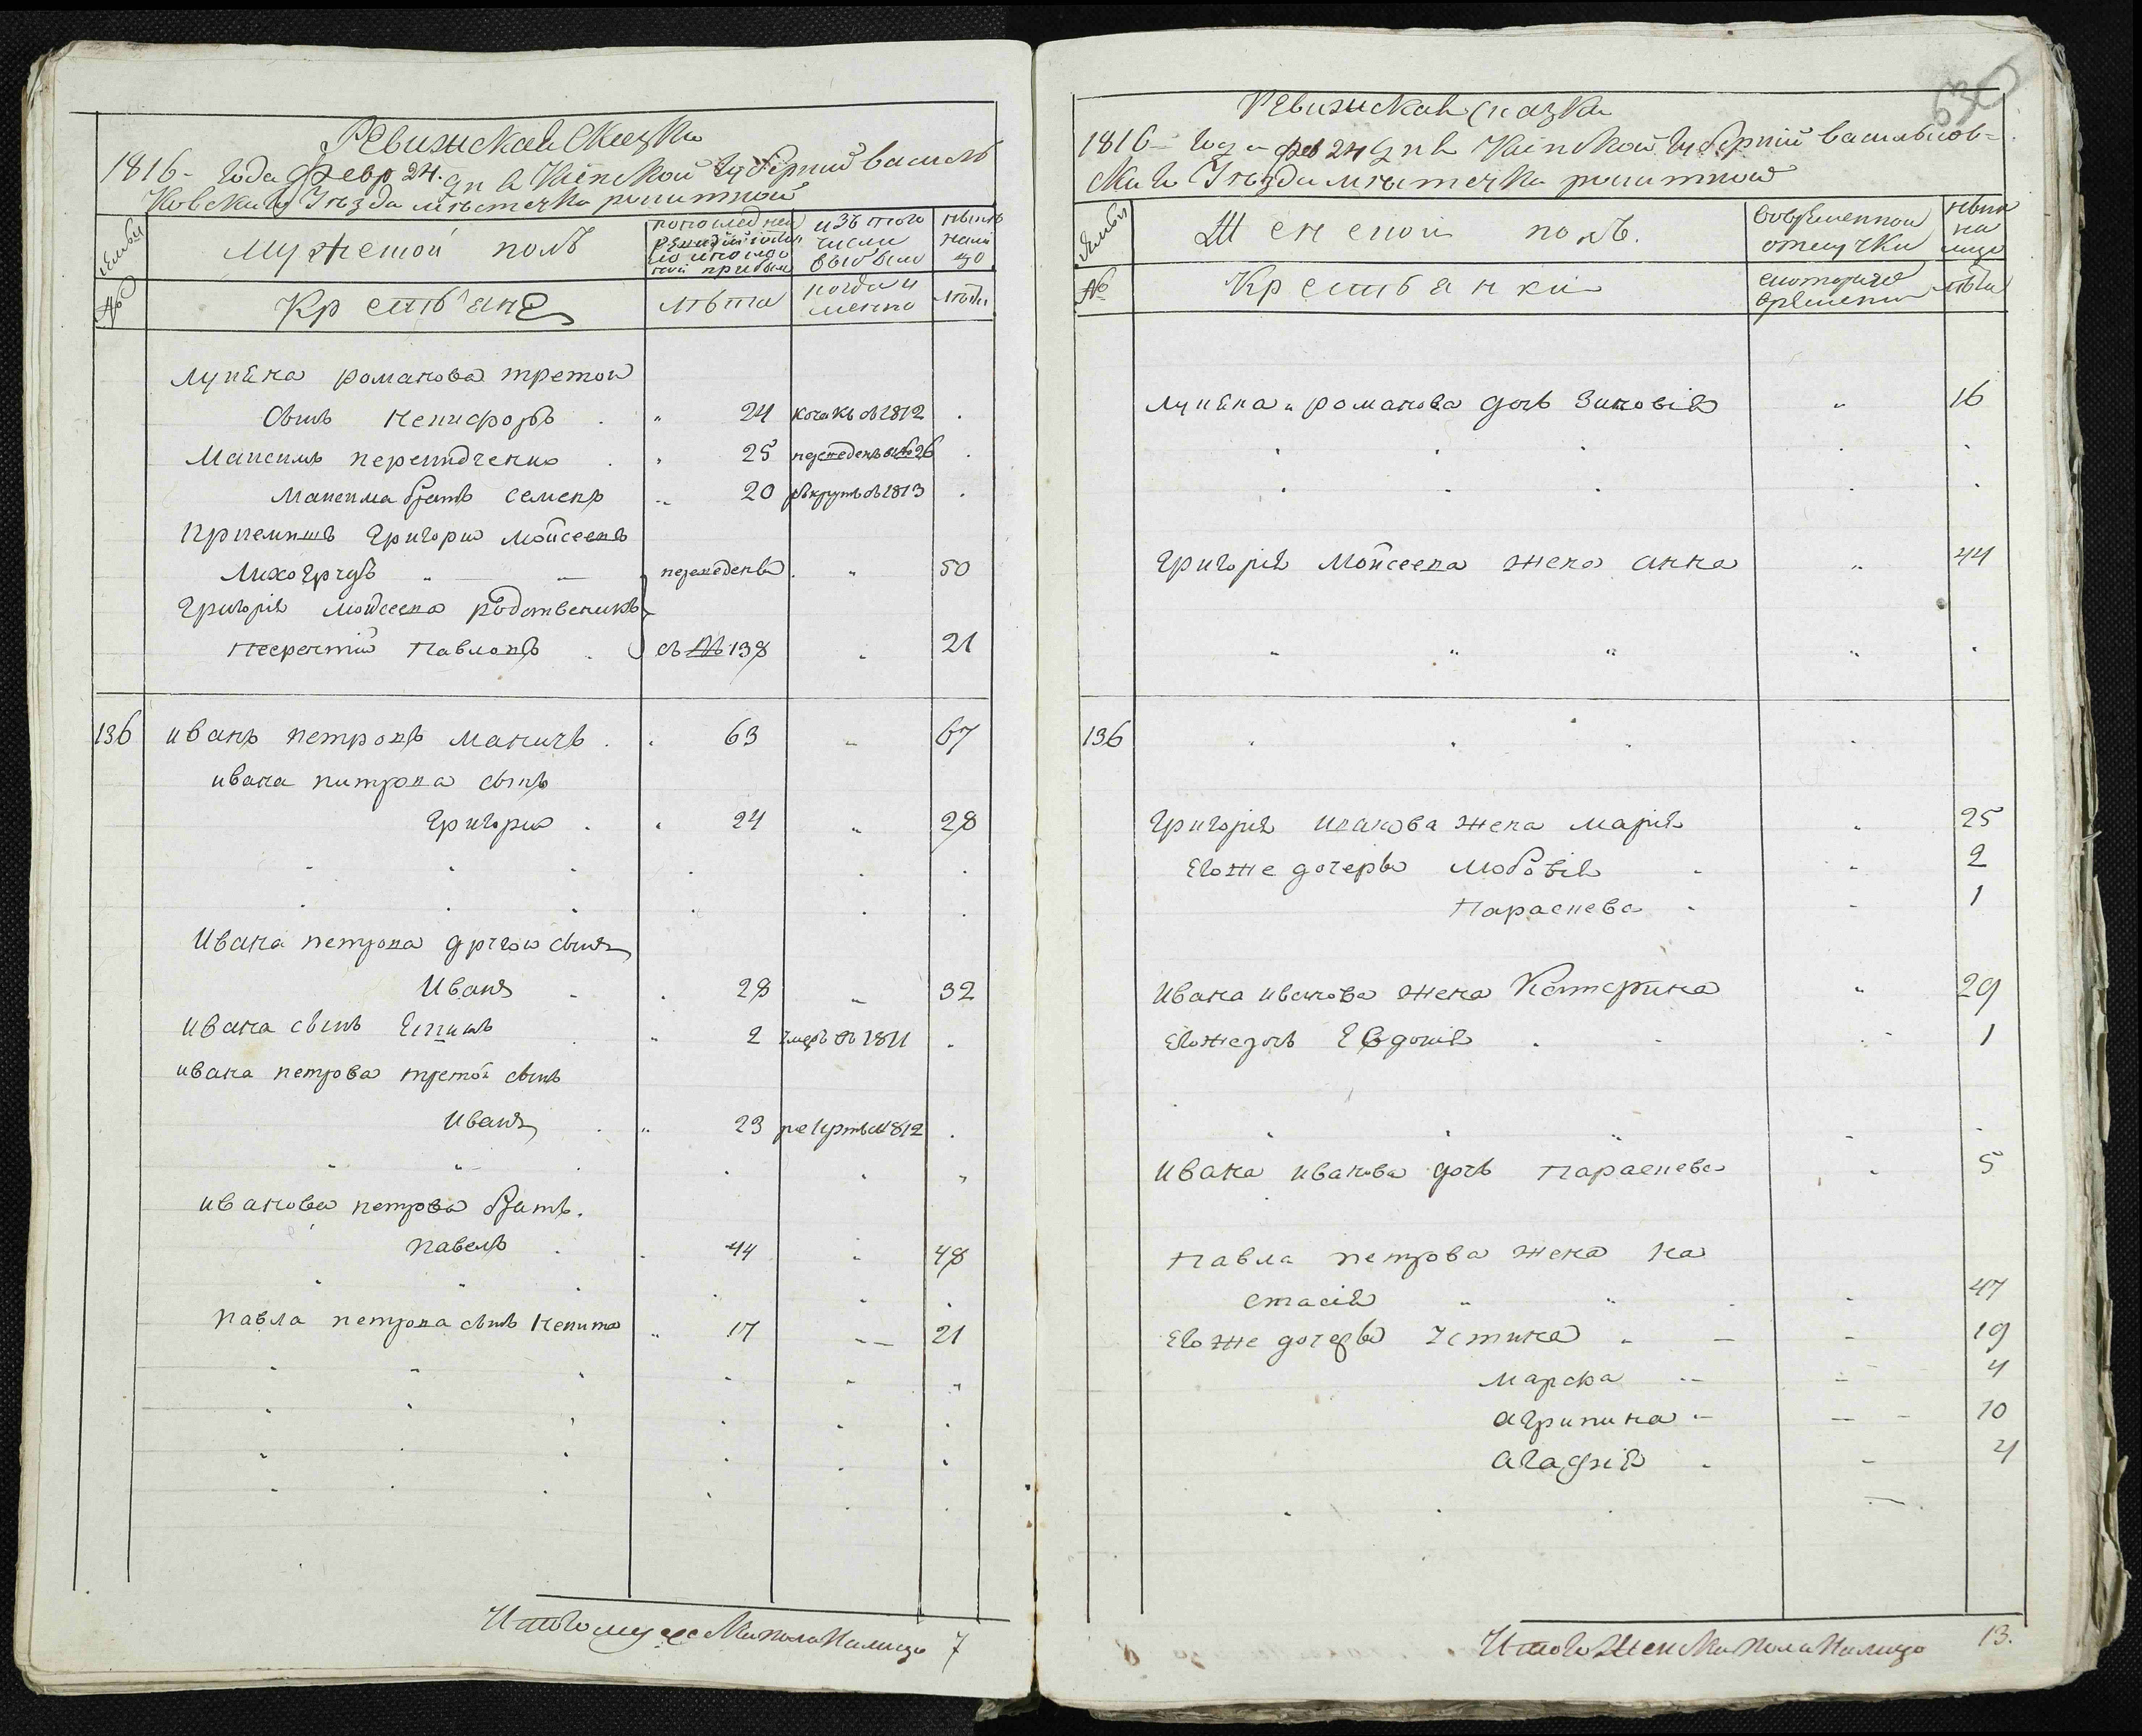 Ревижская Скаска
1816 - года Февр 24. дня Киевской Губернии Василь
ковскаго Уезда местечка ракитной
семьи
мужеской полъ
попоследней ревизии состояло и после того прибыло
изъ того числа выбыло
ныне налицо
№
Крестьяне
лета
когда именно
лета
Лукяна романова третой
сынъ Никифоръ . " 24 козакъ въ 1812 .
Максимъ переитдченко . " 25 переведенъ въ № 26 .
Максима братъ семенъ " 20 рекрутъ въ 1813 .
Приемышъ Григорий Мойсеевъ
Лихогрудъ " — переведены . " 50
Григорія Мойсеева родственикъ
Терентий Павловъ . съ № 138 " 21
136 иванъ петровъ маничъ . . 63 " 67
ивана питрова сынъ
Григорий . . 24 " 28
Ивана петрова другой сынъ
Иванъ . . 28 " 32
Ивана сынъ . " 2 умеръ въ 1811 .
ивана петрова третой сынъ
Иванъ . " 23 рекрутъ в 1812 .
иванова петрова братъ.
павелъ . . 44 " 48
павла петрова сынъ Никита " 17 " — 21
Итого мужеска пола налицо 7
630
Ревижская Сказка
1816 - года фев 24 дня Киевской Губернии Васильков-
скаго Уезда местечка ракитной
семьи
Женской полъ.
Вовременной отлучки
ныне на лицо
№
Крестьянки
с котораго времени
лета
Лукяна " романова дочь Зиновія " 16
Григорія Мойсеева жена анна " 44
136
Григорія иванова жена марія . 25
Его же дочеры Любовія . . 2
Параскева . . 1
Ивана иванова жена Катерина " 29
Его же дочь Евдокия . . 1
Ивана иванова дочь параскева . 5
Павла петрова жена на
стасія " " . . 47
Его же дочеры Устина " — — 19
мариа — — 4
агрипина — — 10
агафія . — 4
Итого женска пола налицо 13.